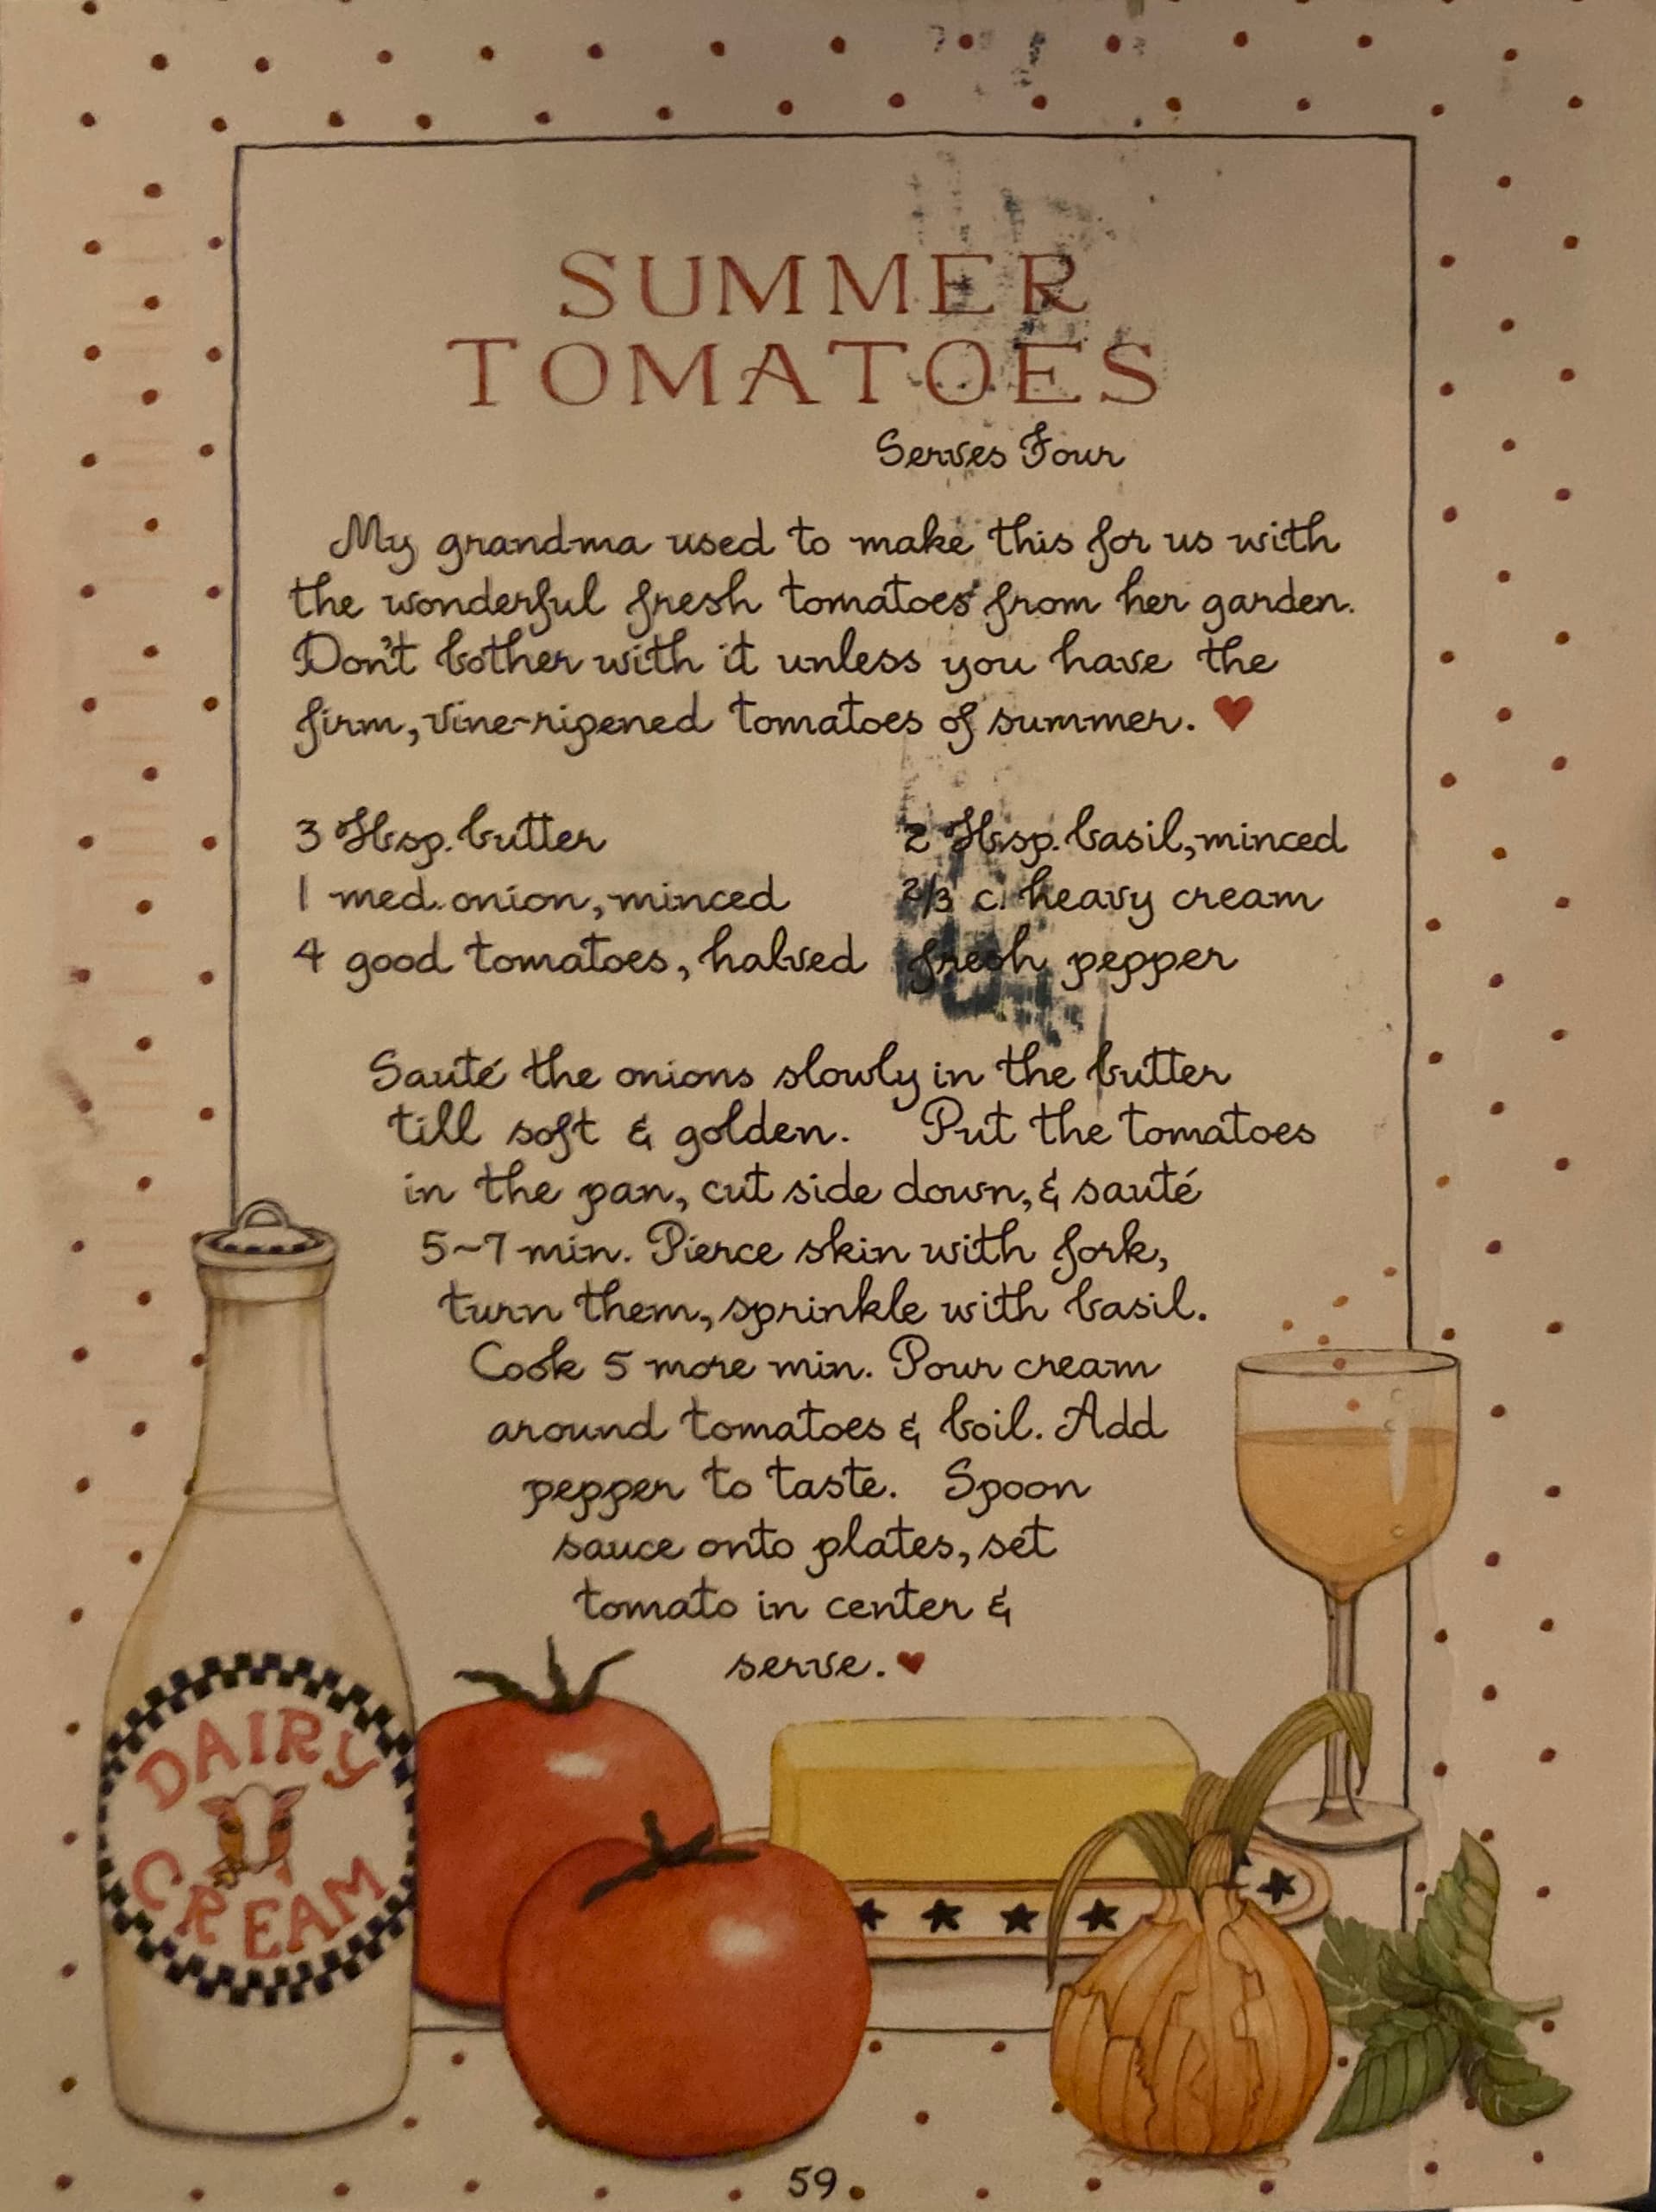 SUMMER
TOMATOES
Serves Four
My grandma used to make this for us with
the wonderful fresh tomatoes from her garden.
Don't bother with it unless you have the
firm, vine-ripened tomatoes of summer. ♥
3 Tbsp. butter
1 med. onion, minced
4 good tomatoes, halved
2 Tbsp. basil, minced
2/3 c. heavy cream
fresh pepper
Sauté the onions slowly in the butter
till soft & golden. Put the tomatoes
in the pan, cut side down, & sauté
5~7 min. Pierce skin with fork,
turn them, sprinkle with basil.
Cook 5 more min. Pour cream
around tomatoes & boil. Add
pepper to taste. Spoon
sauce onto plates, set
tomato in center &
serve. ♥
DAIRY
CREAM
59